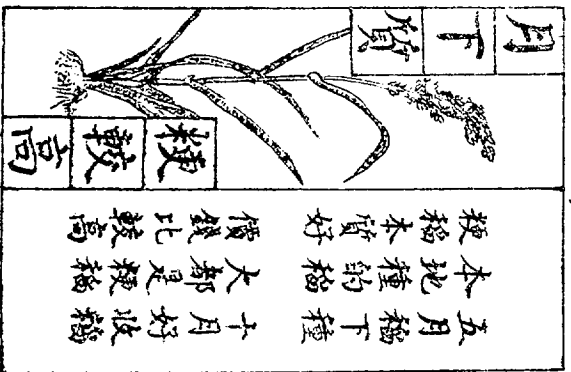 粳較高
月下質
五月稻下種
十月好收稻
本地種的稻
大都是粳稻
粳稻本質好
價錢比較高